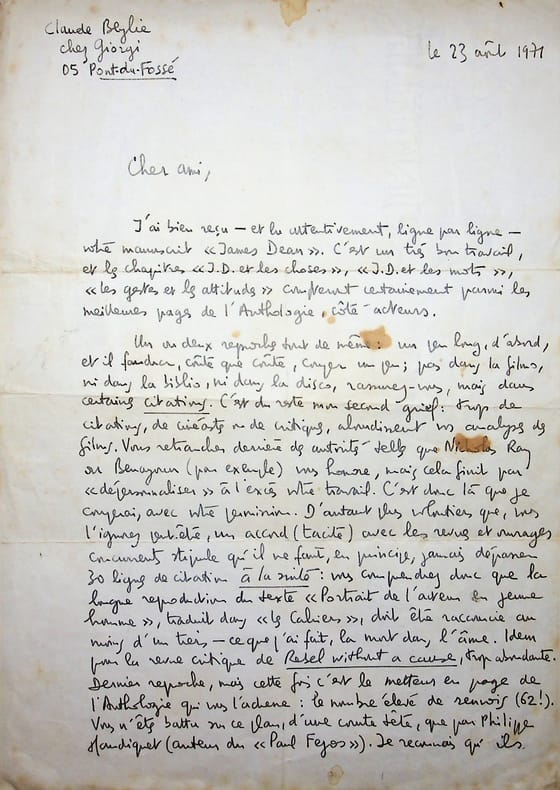 Claude Beylie
chez Giorgi
05 Pont-du-Fossé
le 23 août 1971
Cher ami,
J'ai bien reçu — et lu attentivement, ligne par ligne —
votre manuscrit « James Dean ». C'est un très bon travail,
et les chapitres « J.D. et les choses », « J.D. et les mots »,
« les gestes et les attitudes » compteront certainement parmi les
meilleures pages de l'Anthologie, côté acteurs.
Un ou deux reproches tout de même : un peu long, d'abord,
et il faudra, coûte que coûte, couper un peu ; pas dans la filmo,
ni dans la biblio, ni dans la disco, rassurez-vous, mais dans
certaines citations. C'est du reste mon second grief : trop de
citations, de cinéastes ou de critiques, alourdissent vos analyses de
films. Vous retrancher derrière des autorités telles que Nicholas Ray
ou Benayoun (par exemple) vous honore, mais cela finit par
« dépersonnaliser » à l'excès votre travail. C'est donc là que je
couperai, avec votre permission. D'autant plus volontiers que, vous
l'ignorez peut-être, un accord (tacite) avec les revues et ouvrages
concurrents stipule qu'il ne faut, en principe, jamais dépasser
30 lignes de citation à la suite : vous comprendrez donc que la
longue reproduction du texte « Portrait de l'acteur en jeune
homme », traduit dans « les Cahiers », doit être raccourcie au
moins d'un tiers — ce que j'ai fait, la mort dans l'âme. Idem
pour la revue critique de Rebel without a cause, trop abondante.
Dernier reproche, mais cette fois c'est le metteur en page de
l'Anthologie qui vous l'adresse : le nombre élevé de renvois (62!).
Vous n'êtes battu sur ce plan, d'une courte tête, que par Philippe
Haudiquet (auteur du « Paul Fejos »). Je reconnais qu'ils